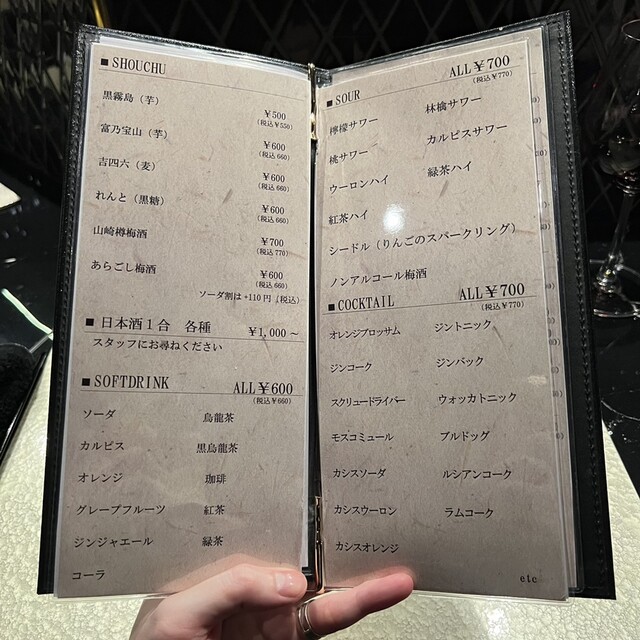 ■ SHOUCHU
黒霧島（芋）
¥500
(税込¥550)
富乃宝山（芋）
¥600
(税込 660)
吉四六（麦）
¥600
(税込 660)
れんと（黒糖）
¥600
(税込 660)
山崎樽梅酒
¥700
(税込 770)
あらごし梅酒
¥600
(税込 660)
ソーダ割は +110 円（税込）
■ 日本酒１合 各種 ¥1,000～
スタッフにお尋ねください
■ SOFTDRINK ALL¥600
(税込¥660)
ソーダ 烏龍茶
カルピス 黒烏龍茶
オレンジ 珈琲
グレープフルーツ 紅茶
ジンジャエール 緑茶
コーラ
■ SOUR ALL¥700
(税込¥770)
檸檬サワー 林檎サワー
桃サワー カルピスサワー
ウーロンハイ 緑茶ハイ
紅茶ハイ
シードル（りんごのスパークリング）
ノンアルコール梅酒
■ COCKTAIL ALL¥700
(税込¥770)
オレンジブロッサム ジントニック
ジンコーク ジンバック
スクリュードライバー ウォッカトニック
モスコミュール ブルドッグ
カシスソーダ ルシアンコーク
カシスウーロン ラムコーク
カシスオレンジ
etc